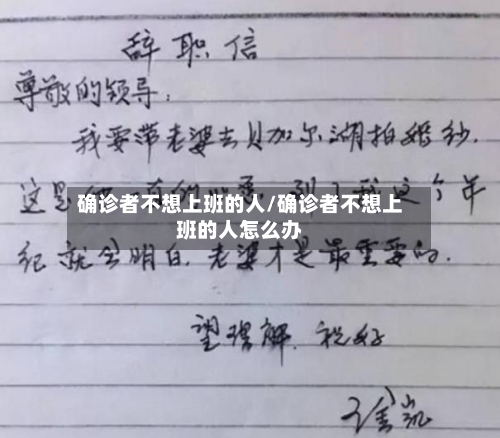 辞职信
尊敬的领导：
我要带老婆去贝加尔湖拍婚纱.
确诊者不想上班的人/确诊者不想上
班的人怎么办
这是 到了我这个年
纪就会明白,老婆才是最重要的.
望理解.祝好